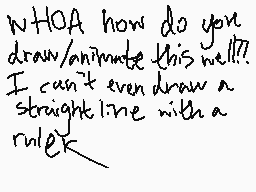 WHOA how do you
draw/animate this well!!??
I can't even draw a
straight line with a
ruler